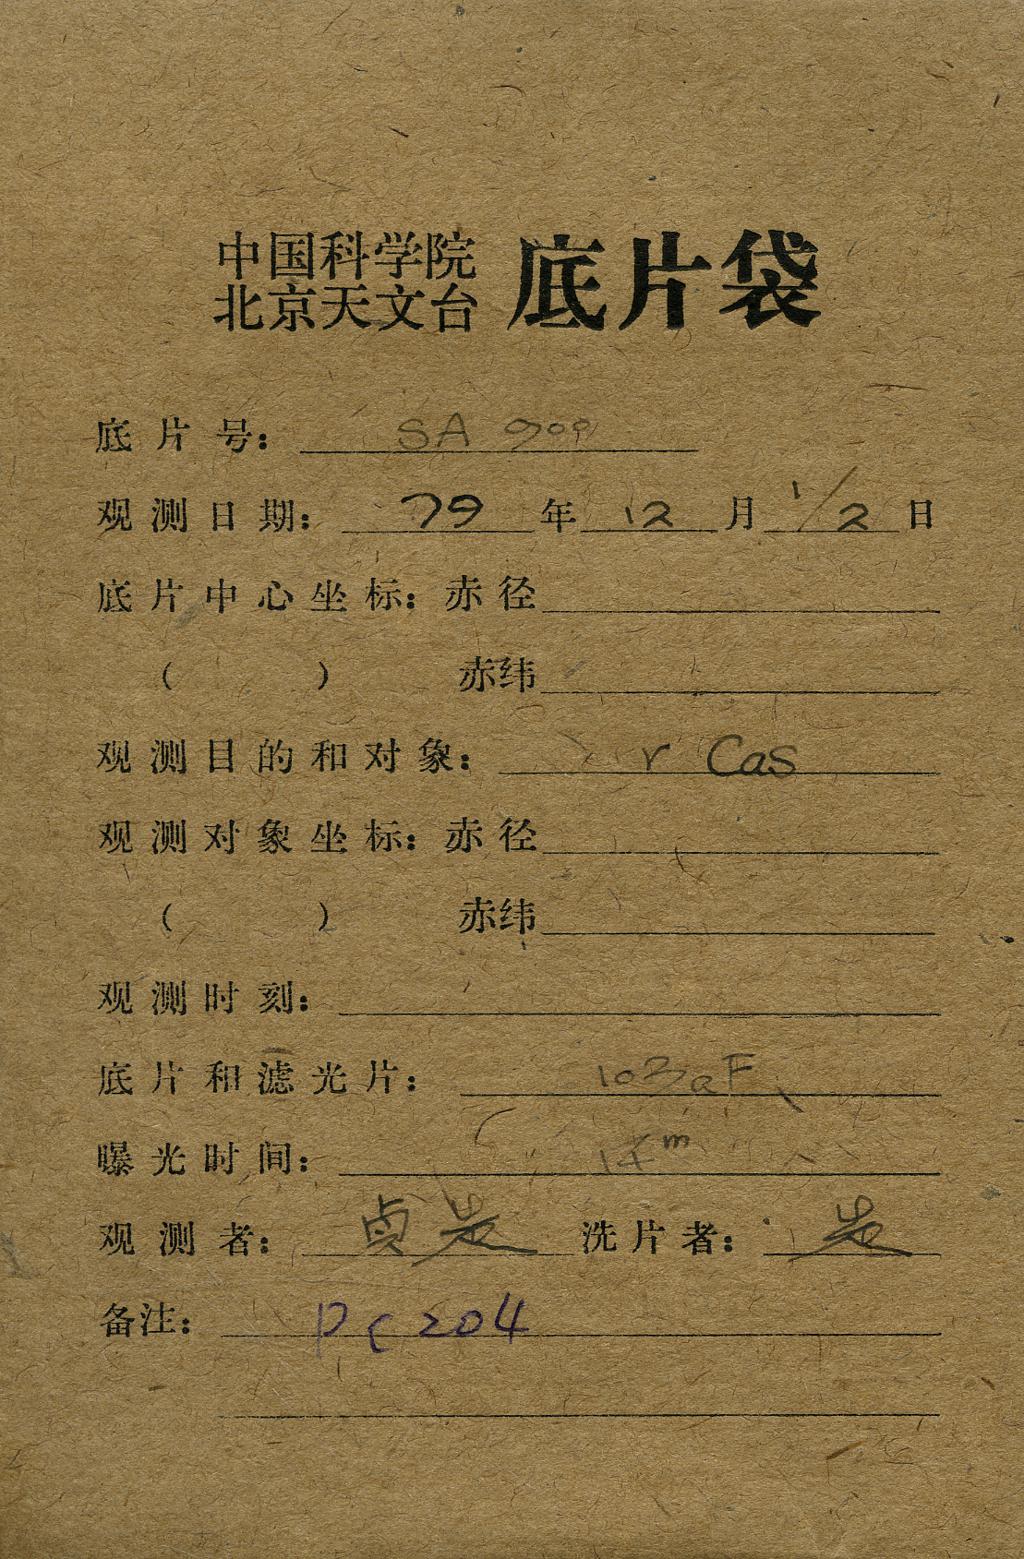 中国科学院
北京天文台 底片袋
底片号: SA 900
观测日期: 79 年 12 月 1/2 日
底片中心坐标: 赤径
( ) 赤纬
观测目的和对象: r Cas
观测对象坐标: 赤径
( ) 赤纬
观测时刻:
底片和滤光片: 103aF
曝光时间: 14m
观测者: 洗片者:
备注: Pc 204